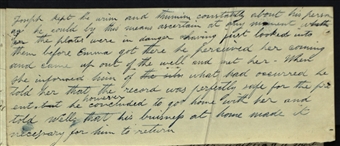 Joseph kept the urim and thummim constantly about his person
as he could by this means ascertain at any moment whether
the plates were in danger having just looked into
them before Emma got there he perceived her coming
and came up out of the well and met her. When
she informed him of what had occurred he
told her that the record was perfectly safe for the pres
ent. but however he concluded to go home with her and
told wells that his buisness at home made it
necessary for him to return